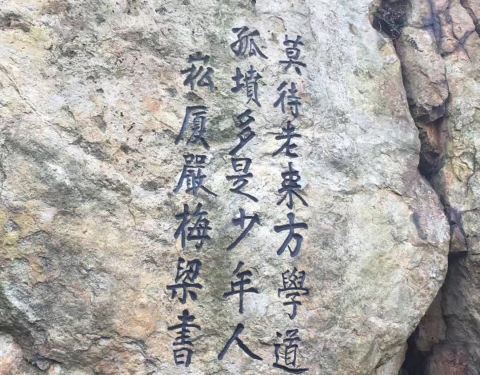 莫待老来方學道
孤墳多是少年人
崧厦嚴梅梁書